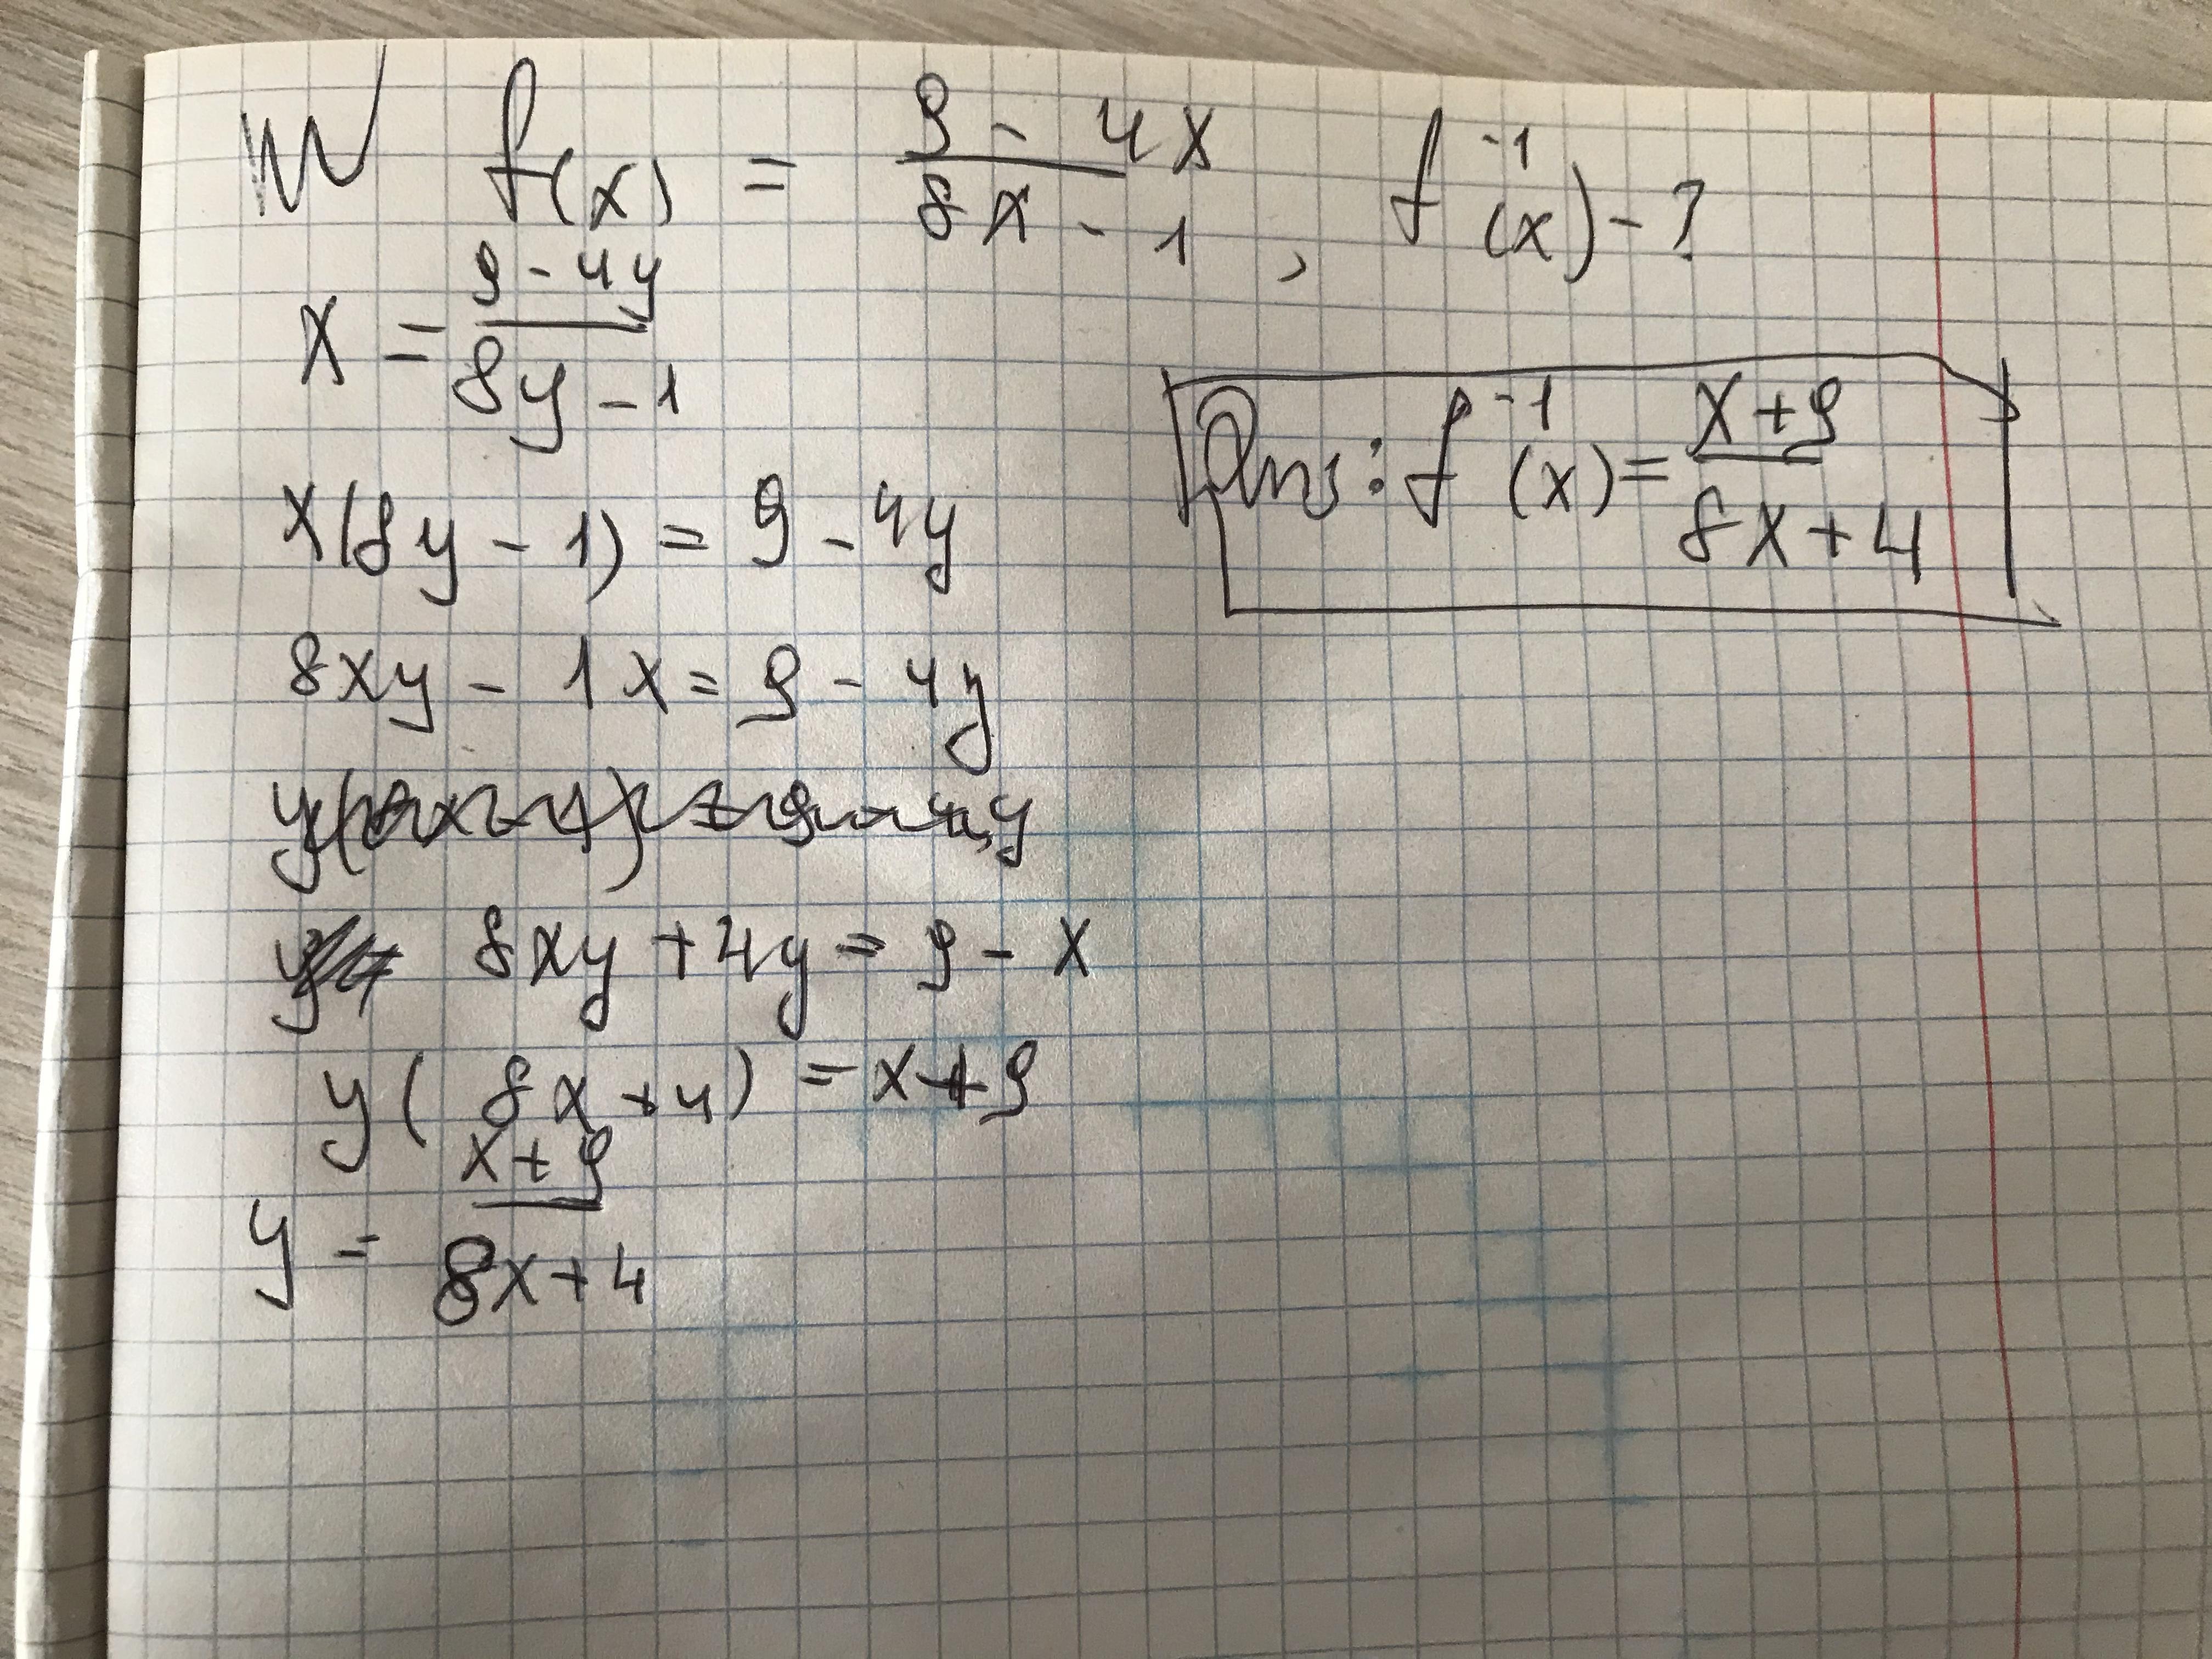 № f(x) = 9 - 4x / 8x - 1 , f⁻¹(x) - ?
x = 9 - 4y / 8y - 1
x(8y - 1) = 9 - 4y
8xy - 1x = 9 - 4y
8xy + 4y = 9 - x
y( 8x + 4) = x + 9
y = x + 9 / 8x + 4
Ans: f⁻¹(x) = x + 9 / 8x + 4